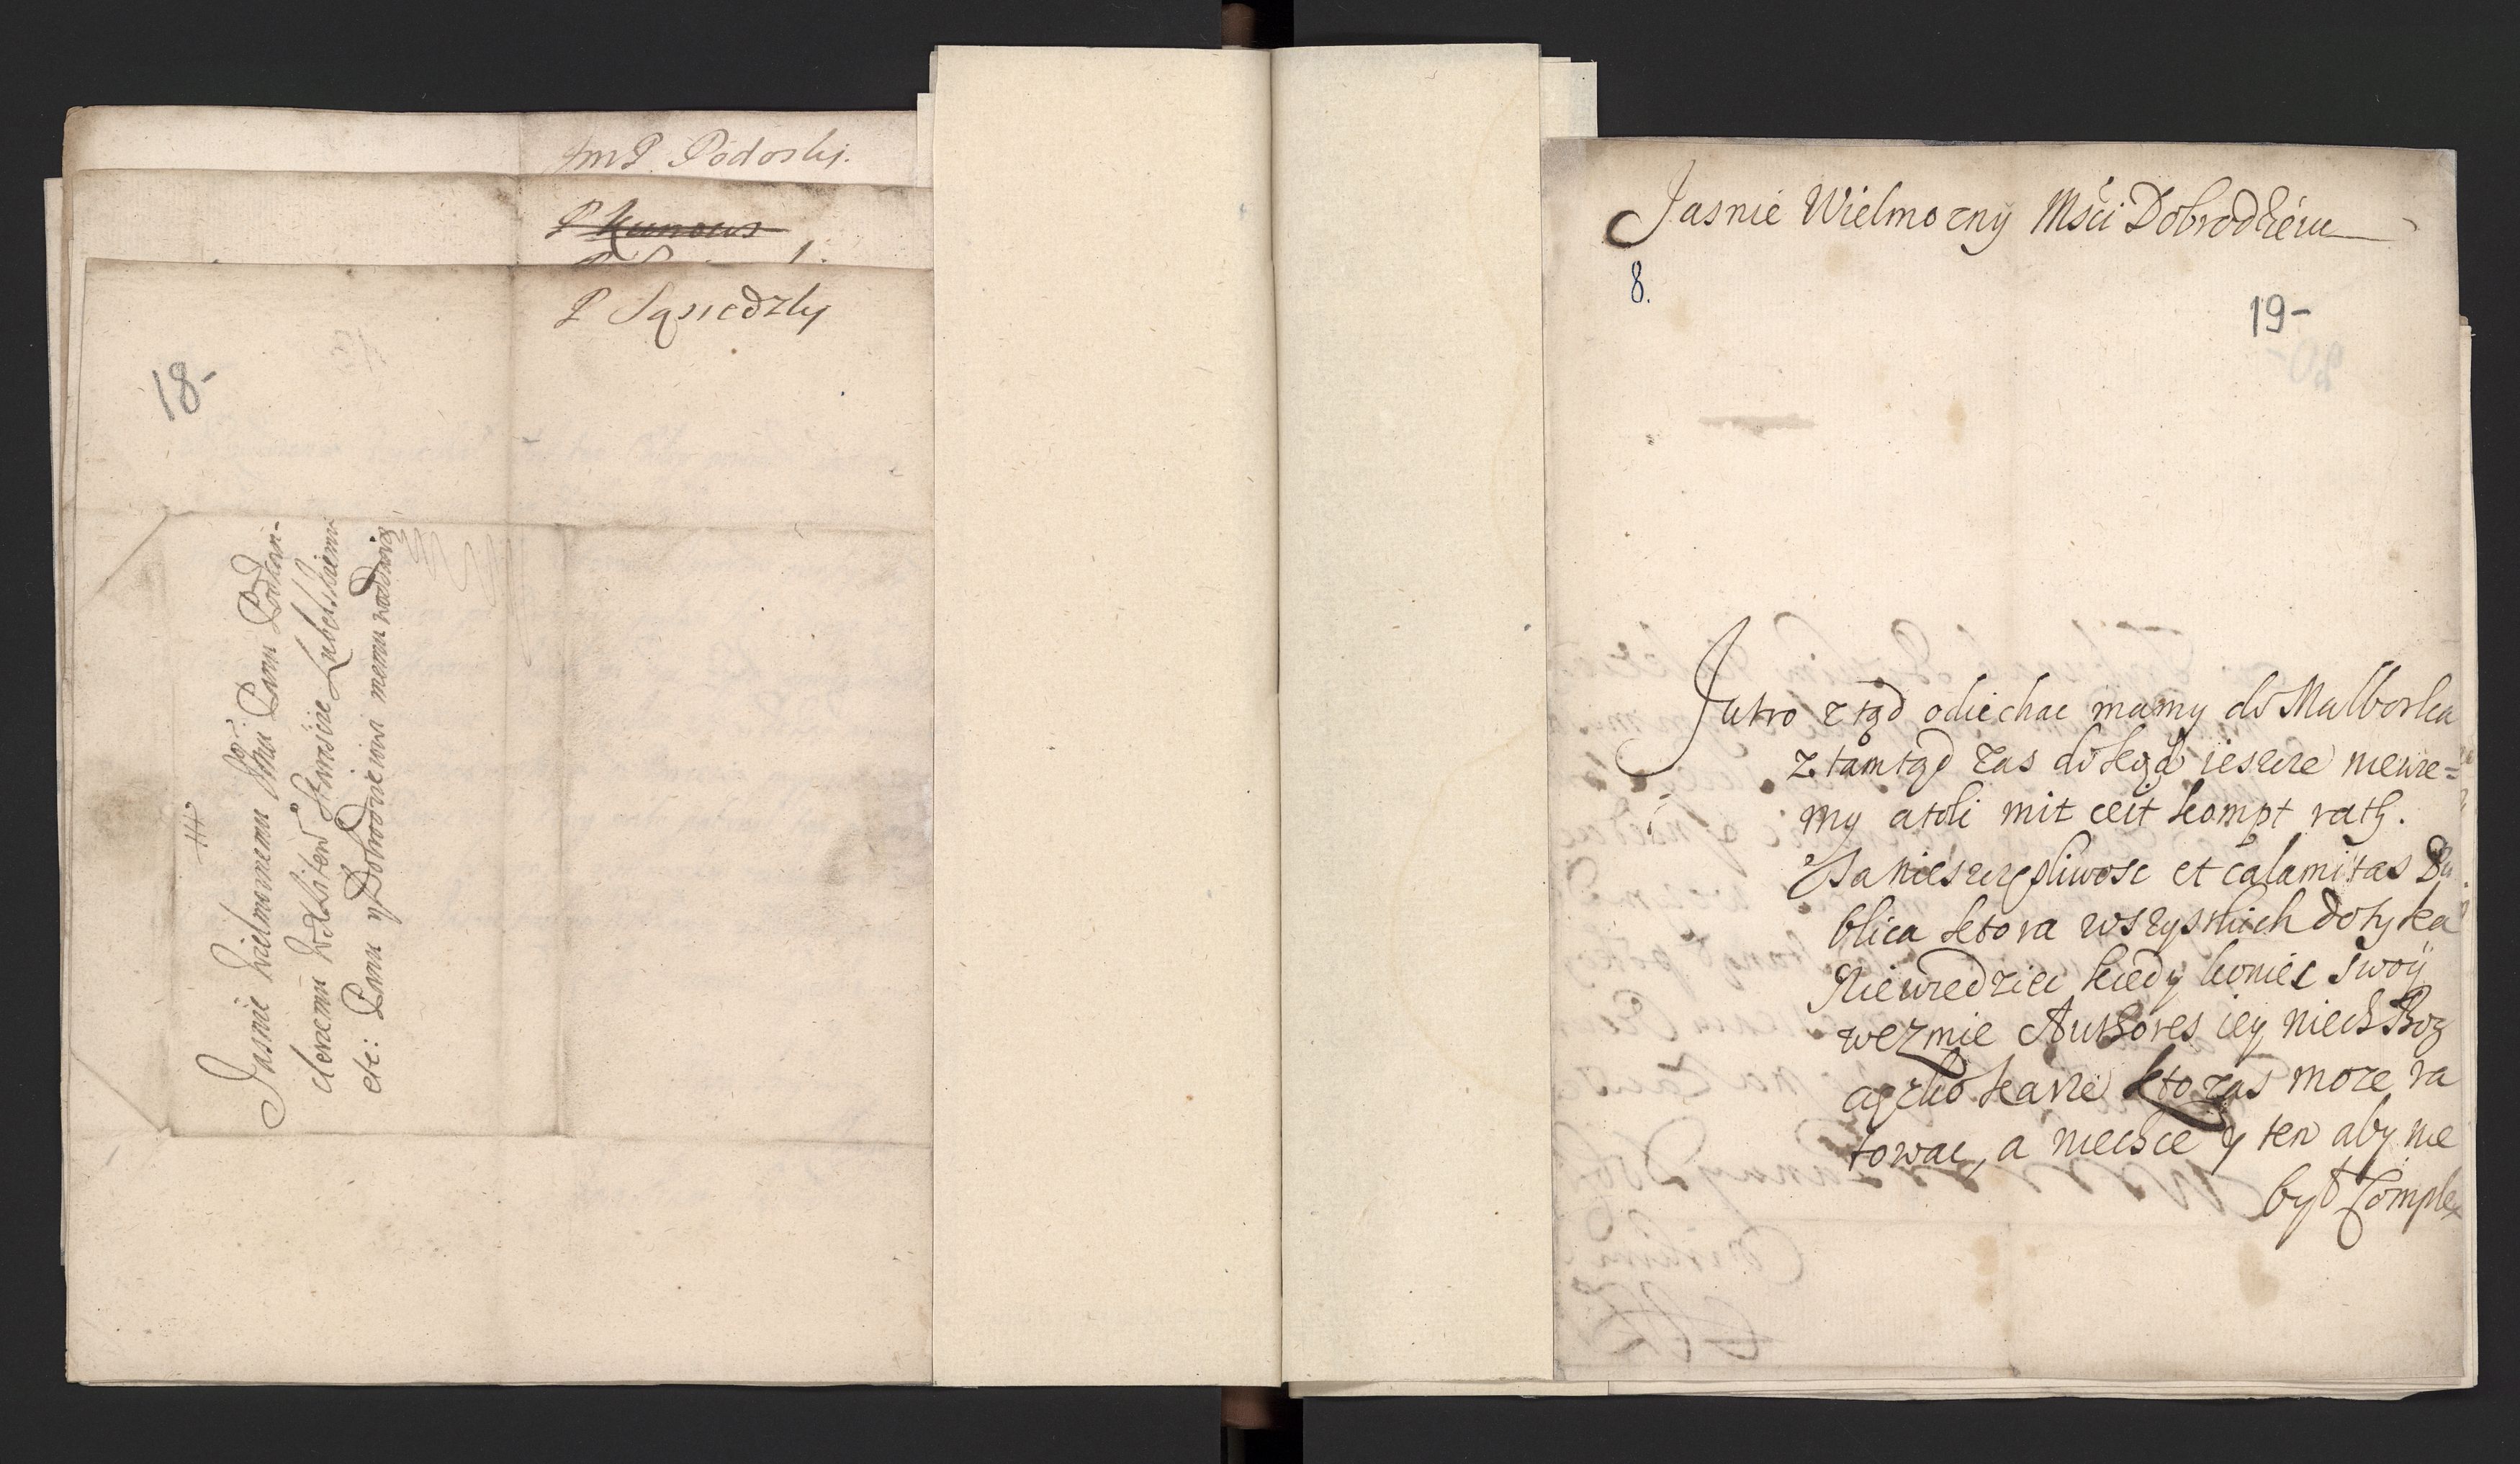 JmP. Podoski.
P Kunows
P Sąsiedzky
18-
#
Jasnie Wielmoznemu Jmci Panu Podkan-
clerzemu WXLitew Staroscie Lubelskiemu
etc: Panu y Dobrodzieiowi memu
Jasnie Wielmozny Msći Dobrodzieiu
8.
19-
Jutro ztąd odiechac mamy do Malborka
z tamtąd zas dokąd ieszcze niewie=
my atoli mit ceit kompt rath.
Ta nieszczęsliwosc et calamitas Pu
blica ktora wszystkich dotyka
Niewiedziec kiedy koniec swoÿ
wezmie Authores iey niech Bog
cięzko karze kto zas moze ra
towac, a niechce y ten aby nie
był Complex